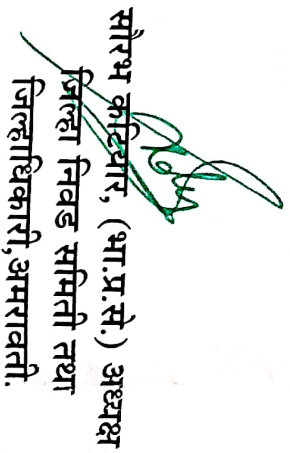 सौरभ कटियार, (भा.प्र.से.) अध्यक्ष
जिल्हा निवड समिती तथा
जिल्हाधिकारी,अमरावती.